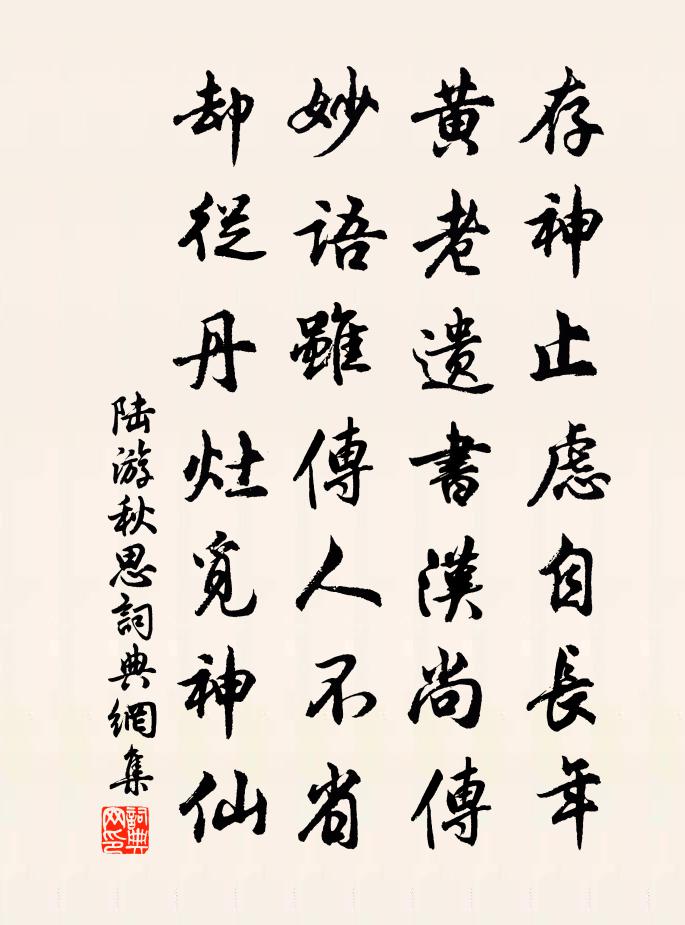 存神止慮自長年
黄老遺書漢尚傳
妙語雖傳人不省
却從丹灶覓神仙
陆游秋思詞典網集
詞典
网印